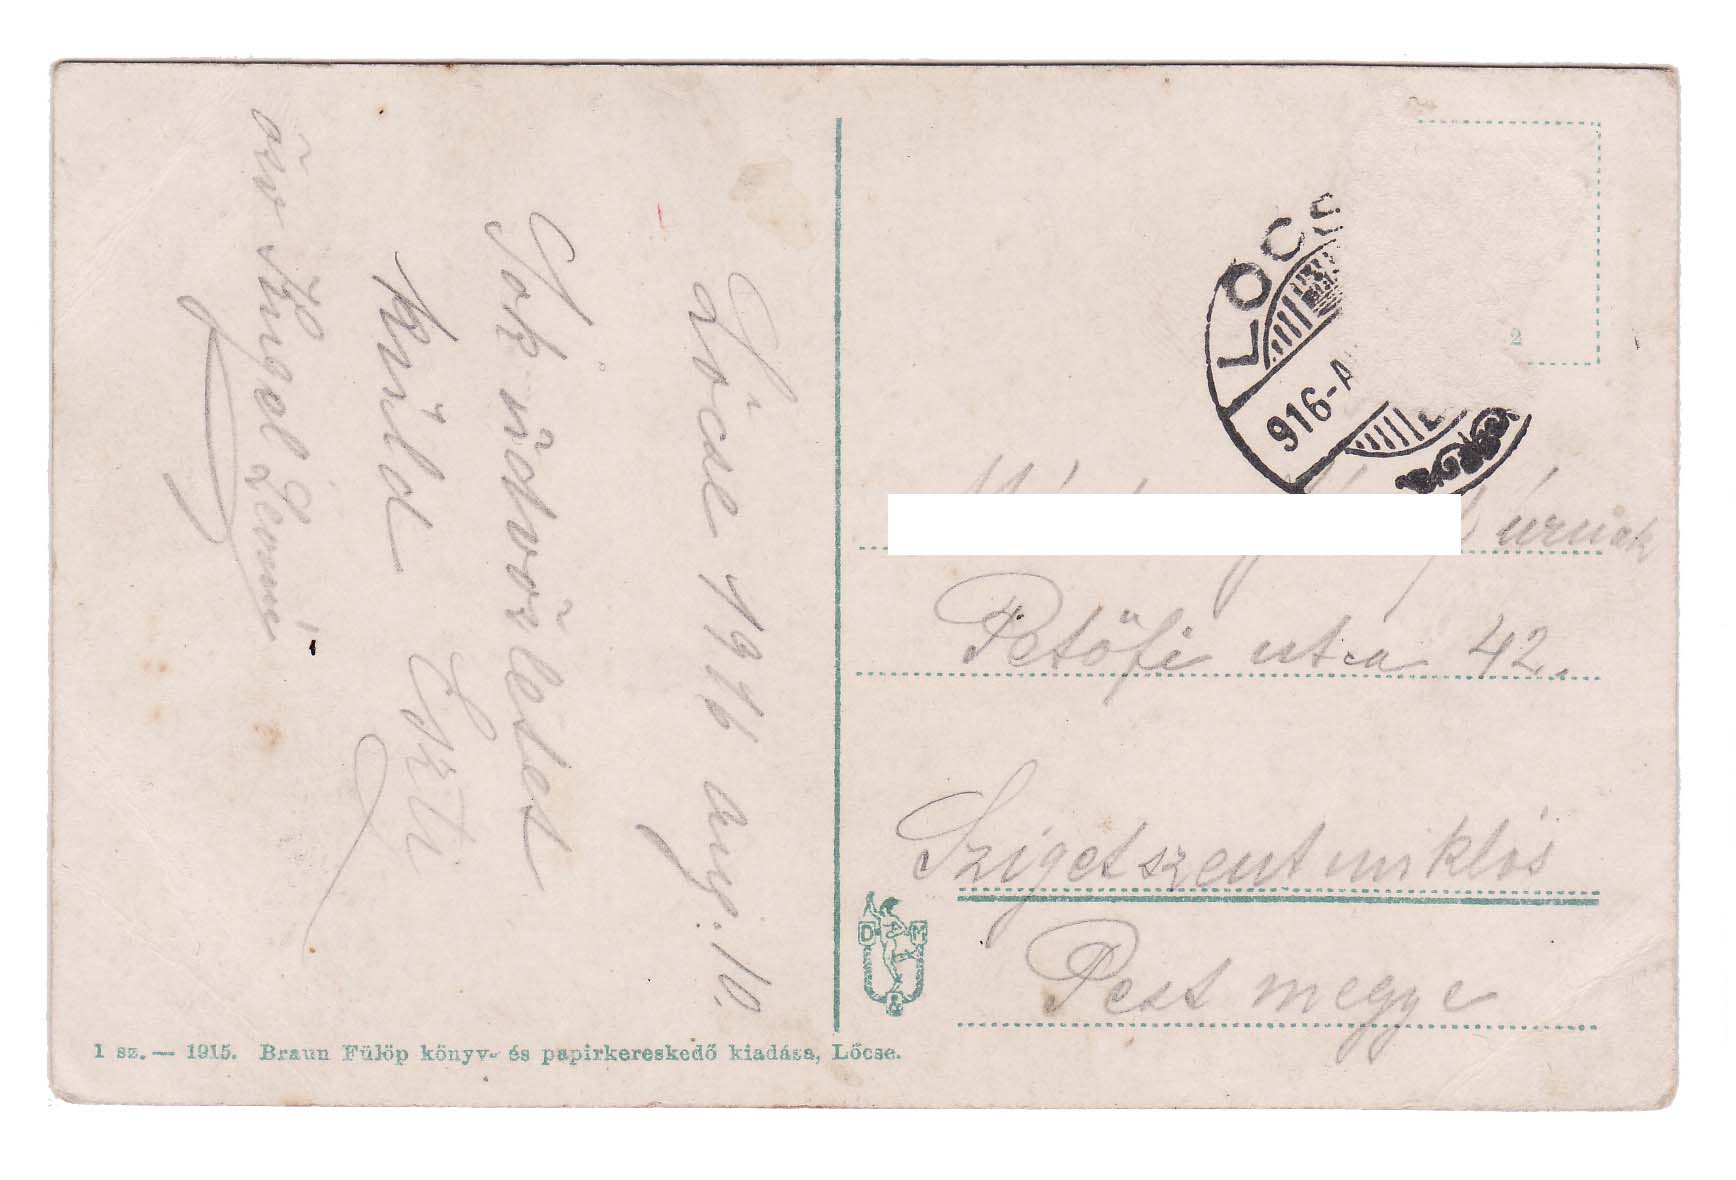 Lőcse 1916 aug. 10.
Sok üdvözletet
küld Eszti
özv
LŐCS
916-A
2
úrnak
Petőfi utca 42.
Szigetszentmiklós
Pest megye
D M
&
1 sz. — 1915. Braun Fülöp könyv- és papirkereskedő kiadása, Lőcse.